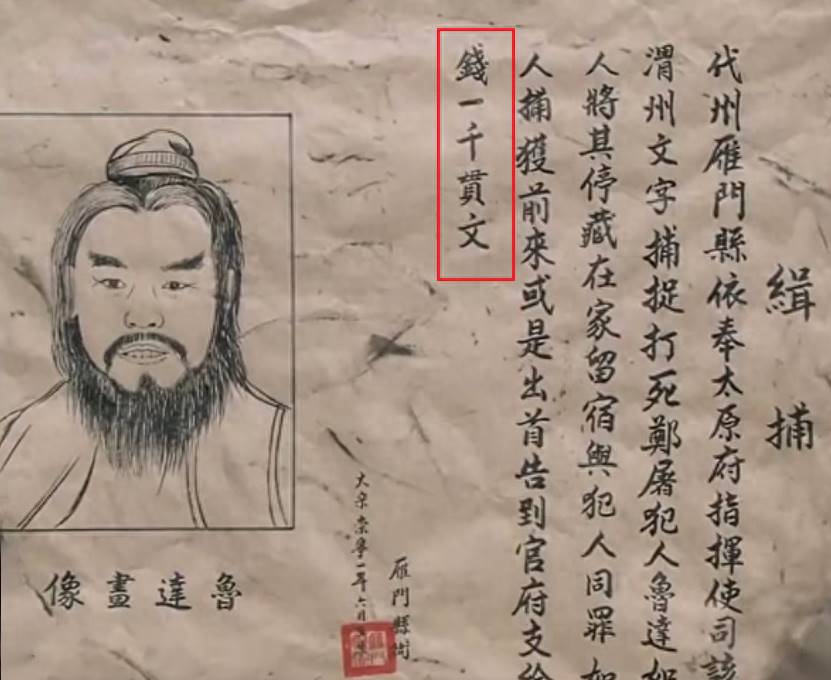 緝捕
代州雁門縣依奉太原府指揮使司該
渭州文字捕捉打死鄭屠犯人魯達如
人將其停藏在家留宿與犯人同罪如
人捕獲前來或是出首告到官府支給
錢一千貫文
雁門縣
大宋崇寧一年六月
魯達畫像